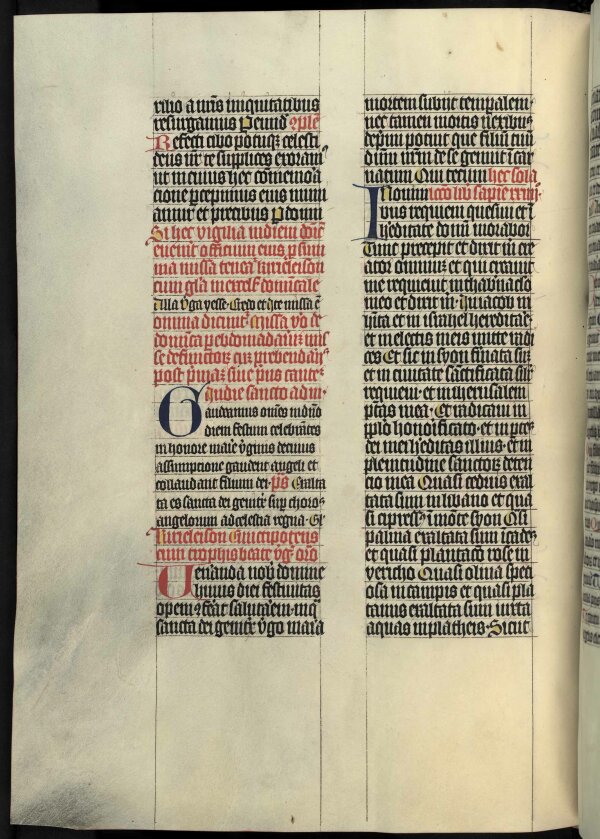 xilio a nr̄is iniquitatibus
resurgamus Per eund̄ 9ple
Refecti cibo potuq; celesti
deus nr̄ te supplices exoram9
ut in cuius hec comemora
cione percepimus eius muni
amur et precibus P domi
Si hec vigilia in diem dn̄ic
euenerit officium eius p summ
ma missa teneat kyrieleison
cum gl̄a in excels̄ dominicale
Alla v̄ga yesse Credo et Ite missa ē
omnia dicunt2 Missa v̄o de
domīca
se defunctor̄
post p̄mā siue p̄us cantet2
In die sancto ad m
Gaudeamus om̄es in dn̄o
diem festum celebrātes
in honore marie v̄ginis de cuius
assumpcione gaudent angeli et
collaudant filium dei ps̄ Exalta
ta es sancta dei genitx̄ sup choros
angelorum ad celestia regna Gl̄
Kyrieleison Cunctipotens
cum trophis beate v̄ḡ Or̄o
Ueneranda nob̄ domine
huius diei festiuitas
opem 9ferat salutarem in q̄
sancta dei genitx̄ v̄go maria
mortem subiit temporalem
nec tamen mortis nexibus
deprimi potuit que filiū tuū
dn̄m nr̄m de se genuit īcar
natum Qui tecum hec sola
In om̄ib3 lc̄o lib̄ sapiē xxiiij
bus requiem quesiui et ī
hereditate dom̄i morabor
Tunc precepit et dixit m̄ cre
ator omnium et qui creauit
me requieuit in thabnaclo
meo et dixit m̄ In iacob in
h̄ita et in israhel hereditare
et in electis meis mitte radi
ces Et sic in syon firmata sū
et in ciuitate sanctificata sil̄r
requieui et in iherusalem
ptās mea Et radicaui in
pplo honorificato et in ptes
dei mei h̄editas illius et in
plenitudine sanctor̄ deten
cio mea Quasi cedrus exal
tata sum in libano et qua
si cipress9 ī mōte syon Q̄si
palma exaltata sum ī cades
et quasi plantacō rose in
yericho Quasi oliua speci
osa in campis et quasi pla
tanus exaltata sum iuxta
aquas in plateis Sicut